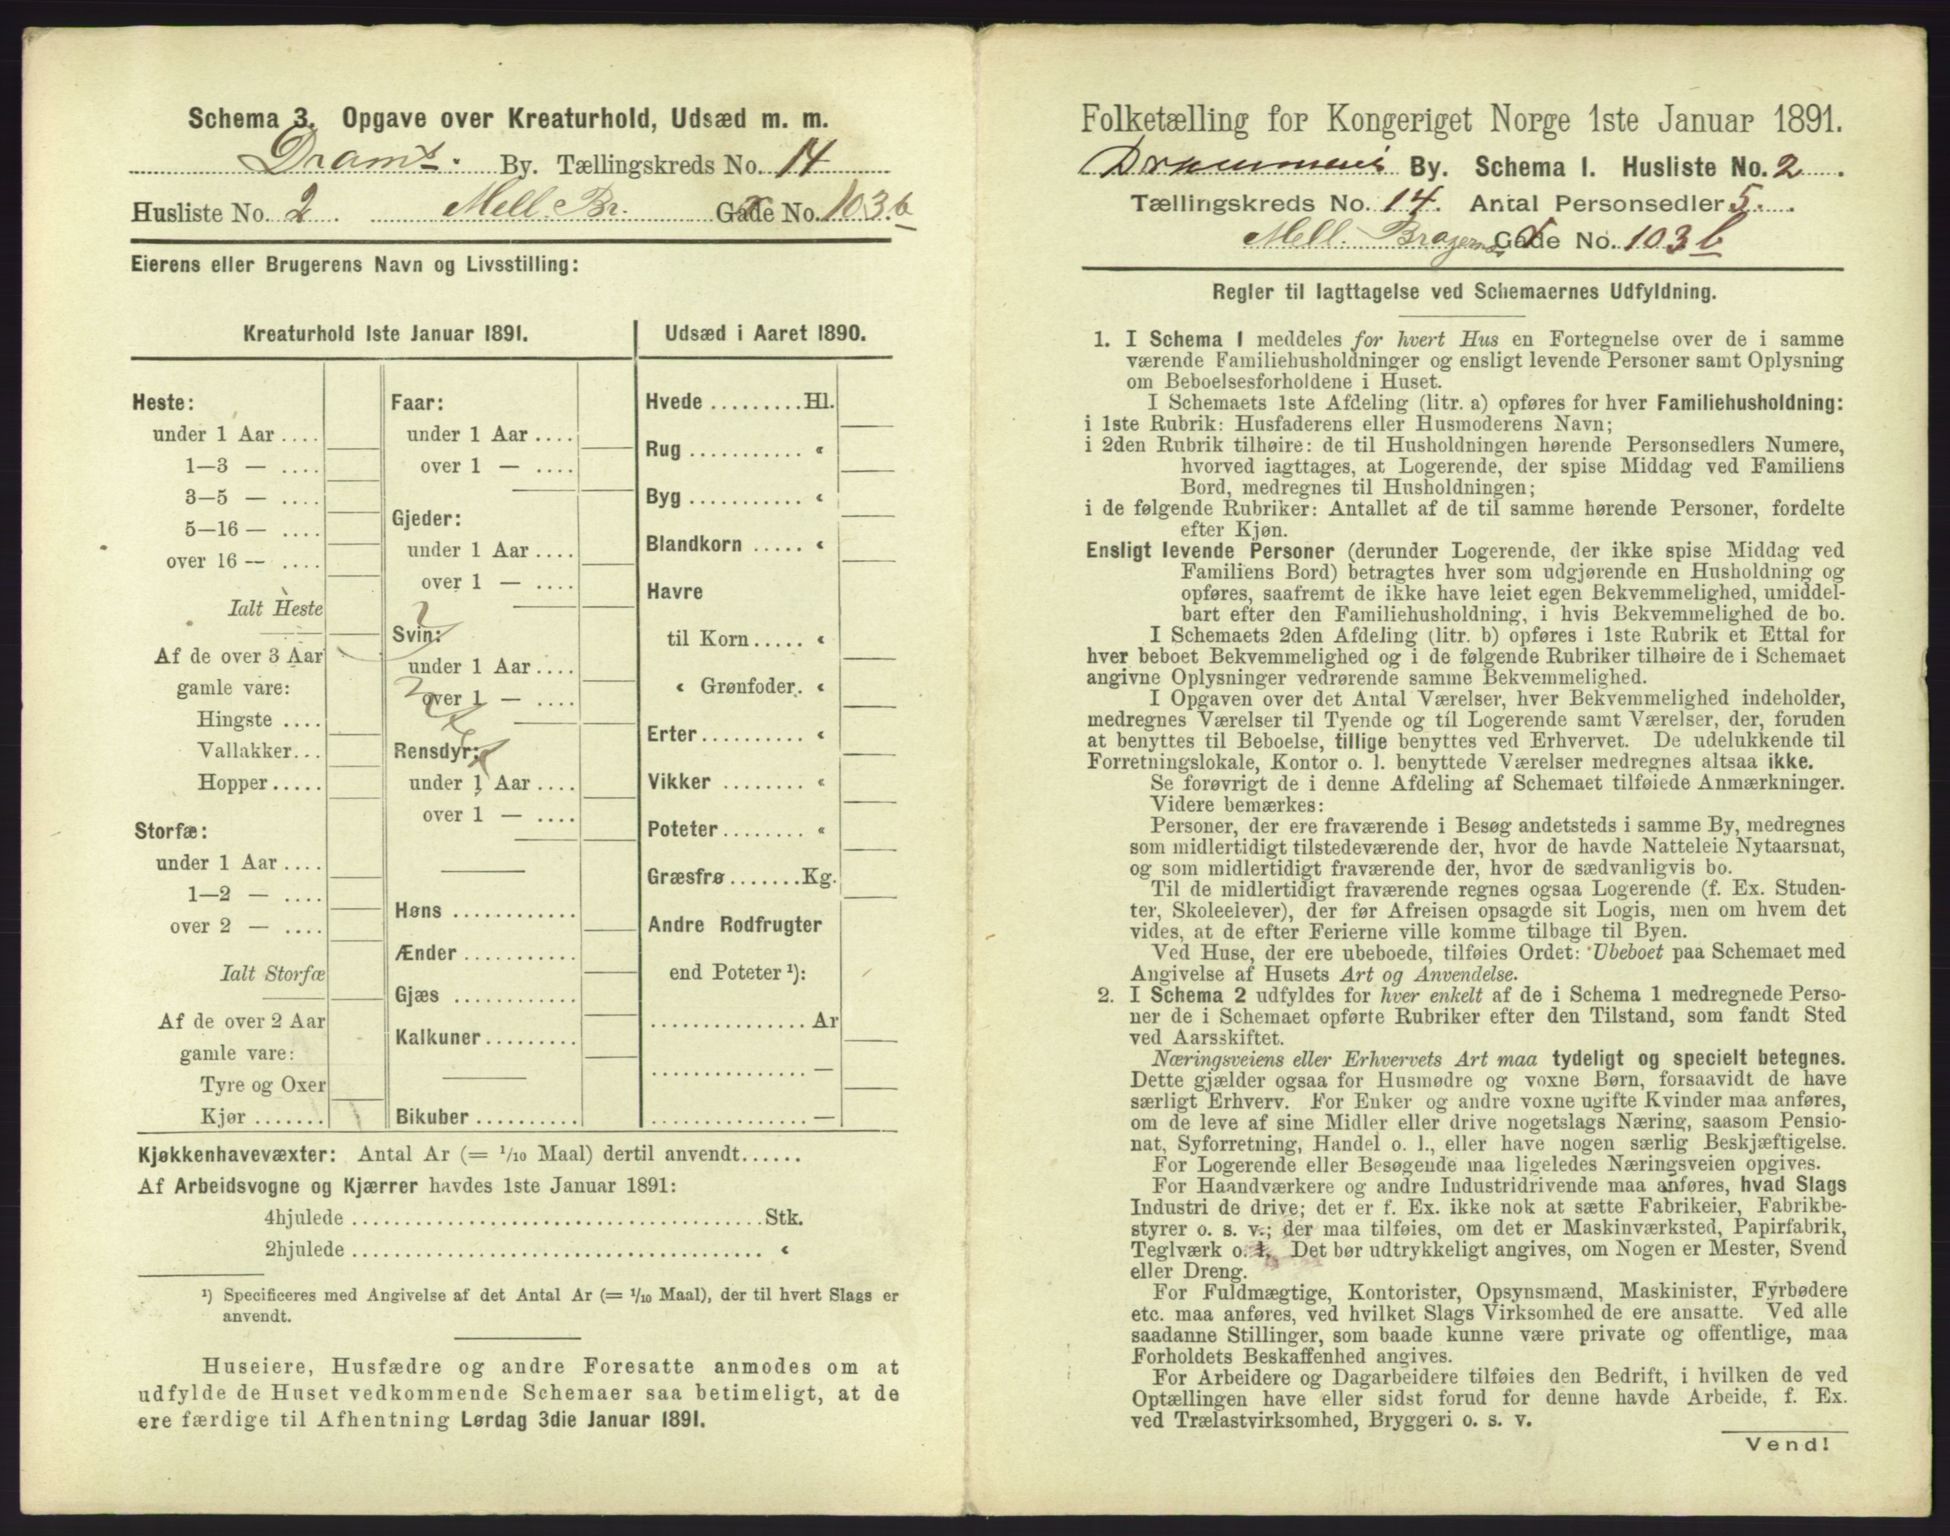 Schema 3. Opgave over Kreaturhold, Udsæd m. m.
Drams. By. Tællingskreds No. 14
Husliste No. 2 Mell. Br. Gade No. 103b
Eierens eller Brugerens Navn og Livsstilling:
Kreaturhold 1ste Januar 1891.
Heste:
under 1 Aar ....
1—3 — ....
3—5 — ....
5—16 — ....
over 16 — ....
Ialt Heste
Af de over 3 Aar
gamle vare:
Hingste ....
Vallakker...
Hopper.....
Storfæ:
under 1 Aar ....
1—2 — ....
over 2 — ....
Ialt Storfæ
Af de over 2 Aar
gamle vare:
Tyre og Oxer
Kjør .......
Faar:
under 1 Aar ....
over 1 — ....
Gjeder:
under 1 Aar ....
over 1 — ....
Svin:
under 1 Aar ....
over 1 — ....
Rensdyr:
under 1 Aar ....
over 1 — ....
Høns ............
Ænder ...........
Gjæs ............
Kalkuner .........
Bikuber ..........
Udsæd i Aaret 1890.
Hvede .........Hl.
Rug ........... «
Byg ........... «
Blandkorn ..... «
Havre
til Korn ..... «
« Grønfoder. «
Erter .......... «
Vikker ........ «
Poteter ........ «
Græsfrø .......Kg.
Andre Rodfrugter
end Poteter ¹):
............... Ar
............... —
............... —
Kjøkkenhavevæxter: Antal Ar (= 1/10 Maal) dertil anvendt......
Af Arbeidsvogne og Kjærrer havdes 1ste Januar 1891:
4hjulede .......................................Stk.
2hjulede ....................................... «
¹) Specificeres med Angivelse af det Antal Ar (= 1/10 Maal), der til hvert Slags er
anvendt.
Huseiere, Husfædre og andre Foresatte anmodes om at
udfylde de Huset vedkommende Schemaer saa betimeligt, at de
ere færdige til Afhentning Lørdag 3die Januar 1891.
Folketælling for Kongeriget Norge 1ste Januar 1891.
Drammens By. Schema 1. Husliste No. 2
Tællingskreds No. 14. Antal Personsedler 5.
Mell. Bragernes Gade No. 103 b
Regler til Iagttagelse ved Schemaernes Udfyldning.
1. I Schema 1 meddeles for hvert Hus en Fortegnelse over de i samme
værende Familiehusholdninger og ensligt levende Personer samt Oplysning
om Beboelsesforholdene i Huset.
I Schemaets 1ste Afdeling (litr. a) opføres for hver Familiehusholdning:
i 1ste Rubrik: Husfaderens eller Husmoderens Navn;
i 2den Rubrik tilhøire: de til Husholdningen hørende Personsedlers Numere,
hvorved iagttages, at Logerende, der spise Middag ved Familiens
Bord, medregnes til Husholdningen;
i de følgende Rubriker: Antallet af de til samme hørende Personer, fordelte
efter Kjøn.
Ensligt levende Personer (derunder Logerende, der ikke spise Middag ved
Familiens Bord) betragtes hver som udgjørende en Husholdning og
opføres, saafremt de ikke have leiet egen Bekvemmelighed, umiddel-
bart efter den Familiehusholdning, i hvis Bekvemmelighed de bo.
I Schemaets 2den Afdeling (litr. b) opføres i 1ste Rubrik et Ettal for
hver beboet Bekvemmelighed og i de følgende Rubriker tilhøire de i Schemaet
angivne Oplysninger vedrørende samme Bekvemmelighed.
I Opgaven over det Antal Værelser, hver Bekvemmelighed indeholder,
medregnes Værelser til Tyende og til Logerende samt Værelser, der, foruden
at benyttes til Beboelse, tillige benyttes ved Erhvervet. De udelukkende til
Forretningslokale, Kontor o. l. benyttede Værelser medregnes altsaa ikke.
Se forøvrigt de i denne Afdeling af Schemaet tilføiede Anmærkninger.
Videre bemærkes:
Personer, der ere fraværende i Besøg andetsteds i samme By, medregnes
som midlertidigt tilstedeværende der, hvor de havde Natteleie Nytaarsnat,
og som midlertidigt fraværende der, hvor de sædvanligvis bo.
Til de midlertidigt fraværende regnes ogsaa Logerende (f. Ex. Studen-
ter, Skoleelever), der før Afreisen opsagde sit Logis, men om hvem det
vides, at de efter Ferierne ville komme tilbage til Byen.
Ved Huse, der ere ubeboede, tilføies Ordet: Ubeboet paa Schemaet med
Angivelse af Husets Art og Anvendelse.
2. I Schema 2 udfyldes for hver enkelt af de i Schema 1 medregnede Perso-
ner de i Schemaet opførte Rubriker efter den Tilstand, som fandt Sted
ved Aarsskiftet.
Næringsveiens eller Erhvervets Art maa tydeligt og specielt betegnes.
Dette gjælder ogsaa for Husmødre og voxne Børn, forsaavidt de have
særligt Erhverv. For Enker og andre voxne ugifte Kvinder maa anføres,
om de leve af sine Midler eller drive nogetslags Næring, saasom Pensio-
nat, Syforretning, Handel o. l., eller have nogen særlig Beskjæftigelse.
For Logerende eller Besøgende maa ligeledes Næringsveien opgives.
For Haandværkere og andre Industridrivende maa anføres, hvad Slags
Industri de drive; det er f. Ex. ikke nok at sætte Fabrikeier, Fabrikbe-
styrer o. s. v.; der maa tilføies, om det er Maskinværksted, Papirfabrik,
Teglværk o. l. Det bør udtrykkeligt angives, om Nogen er Mester, Svend
eller Dreng.
For Fuldmægtige, Kontorister, Opsynsmænd, Maskinister, Fyrbødere
etc. maa anføres, ved hvilket Slags Virksomhed de ere ansatte. Ved alle
saadanne Stillinger, som baade kunne være private og offentlige, maa
Forholdets Beskaffenhed angives.
For Arbeidere og Dagarbeidere tilføies den Bedrift, i hvilken de ved
Optællingen have eller sidst forud for denne havde Arbeide, f. Ex.
ved Trælastvirksomhed, Bryggeri o. s. v.
Vend!